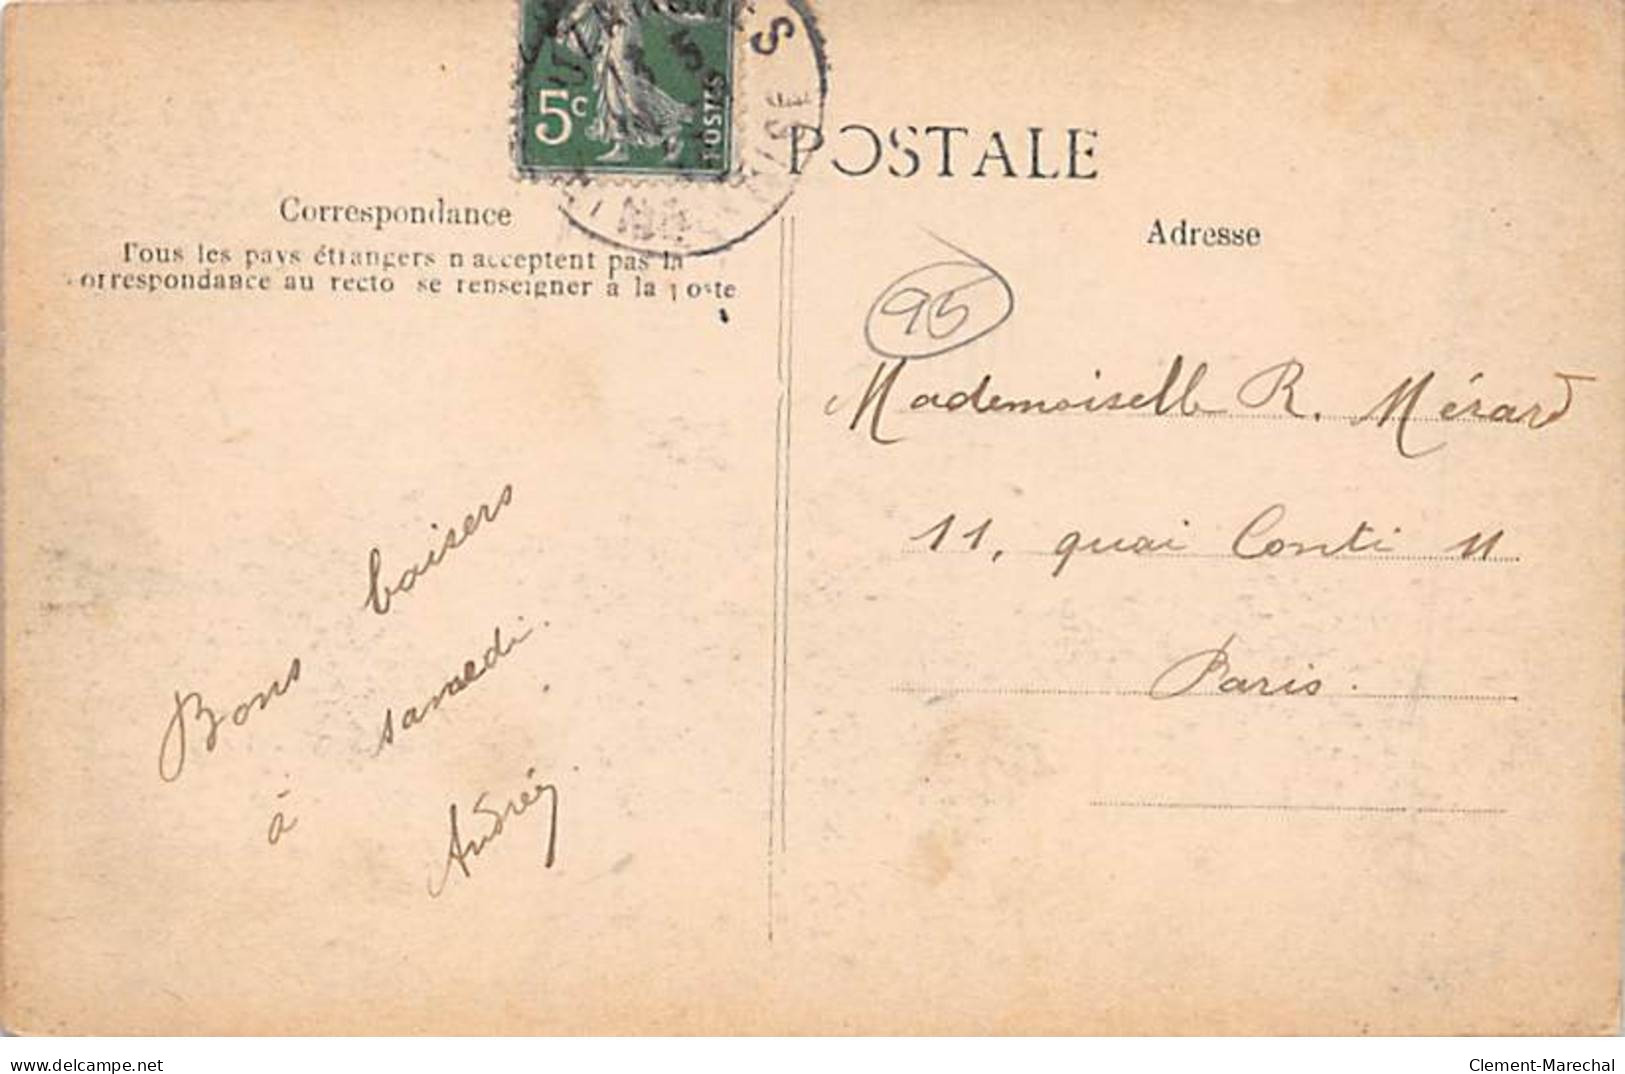 5c
POSTES
POSTALE
Correspondance
Tous les pays étrangers n'acceptent pas la
correspondance au recto se renseigner à la poste
Adresse
95
Mademoiselle R. Mérard
11, quai Conti 11
Paris.
Bons baisers
à samedi.
Andrée
www.delcampe.net
Clement-Marechal